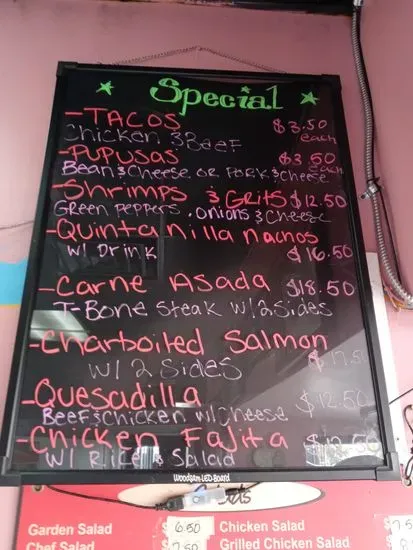 ★ Special ★
-TACOS $3.50
Chicken & Beef each
-PUPUSAS $3.50
Bean & Cheese or Pork & Cheese each
-Shrimps & Grits $12.50
Green Peppers, onions & Cheese
-Quintanilla Nachos
W/ Drink $16.50
-Carne Asada $18.50
T-Bone Steak W/ 2 Sides
-Charboiled Salmon
W/ 2 Sides $17.50
-Quesadilla $12.50
Beef & Chicken w/ Cheese
-Chicken Fajita
W/ Rice & Salad
Woodsam LED Board
Garden Salad 6.50 Chicken Salad
Chef Salad 7.50 Grilled Chicken Salad